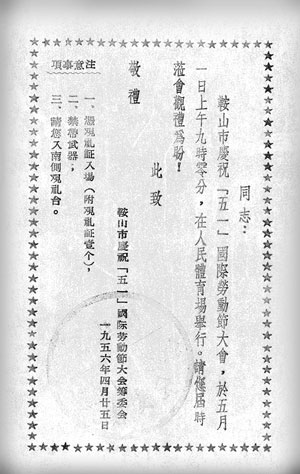 同志：
鞍山市慶祝「五一」國際勞動節大會，於五月
一日上午九時零分，在人民體育場舉行。請您屆時
蒞會觀禮爲盼！
此致
敬禮
鞍山市慶祝「五一」國際勞動節大会籌委会
一九五六年四月廿五日
注意事項
一、憑观礼証入場（附观礼証壹个），
二、禁帶武器；
三、請您入南側观礼台。